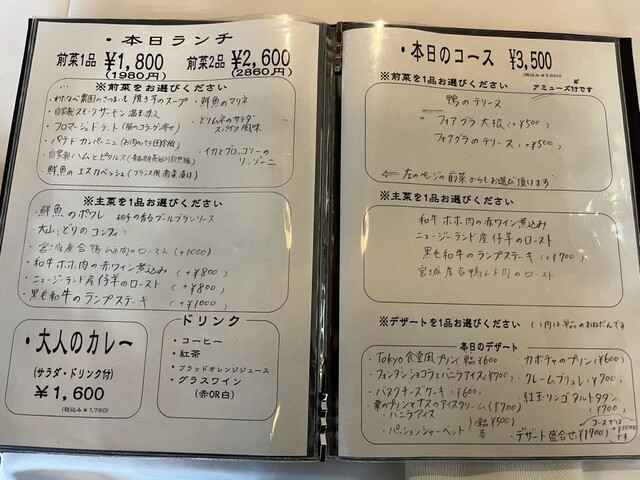 ・本日ランチ
前菜1品 ¥1,800 前菜2品 ¥2,600
(1980円) (2860円)
※前菜をお選びください
焼き芋のスープ
・鮮魚のマリネ
・自家製スモークサーモン
・フロマージュドテット
・とりムネのサラダ
・パテドカンパーニュ
・自家製ハムとピクルス
・イカとブロッコリーの
・鮮魚のエスカベッシュ(フランス風南蛮漬け)
※主菜を1品お選びください
・鮮魚のポワレ 柚子の香るブールブランソース
・大山どりのコンフィ
・宮城産合鴨ムネ肉のロースト (+1000)
・和牛ホホ肉の赤ワイン煮込み (+¥800)
・ニュージーランド産仔羊のロースト (+¥800)
・黒毛和牛のランプステーキ (+¥1000)
・大人のカレー
(サラダ・ドリンク付)
¥1,600
(税込み¥1,760)
ドリンク
・コーヒー
・紅茶
・ブラッドオレンジジュース
・グラスワイン
(赤OR白)
・本日のコース ¥3,500
(税込み¥3,850)
※前菜を1品お選びください
アミューズ付です
鴨のテリーヌ
フォアグラ大根 (+¥500)
フォアグラのテリーヌ (+¥500)
← 左のページの前菜からもお選び頂けます
※主菜を1品お選びください
和牛ホホ肉の赤ワイン煮込み
ニュージーランド産仔羊のロースト
黒毛和牛のランプステーキ (+¥700)
宮城産合鴨ムネ肉のロースト
※デザートを1品お選びください ( )内は単品のおねだんです
本日のデザート
・Tokyo食堂風プリン 単品¥600
・カボチャのプリン (¥600)
・フォンダンショコラとバニラアイス(¥700)
・クレームブリュレ (¥700)
・バスクチーズケーキ (¥600)
・紅玉リンゴタルトタタン (¥700)
・栗のプリンとナスのアイスクリーム(¥700)
・バニラアイス
・パッションシャーベット
・デザート盛合せ(¥1700)
コースでは
+¥1000
です